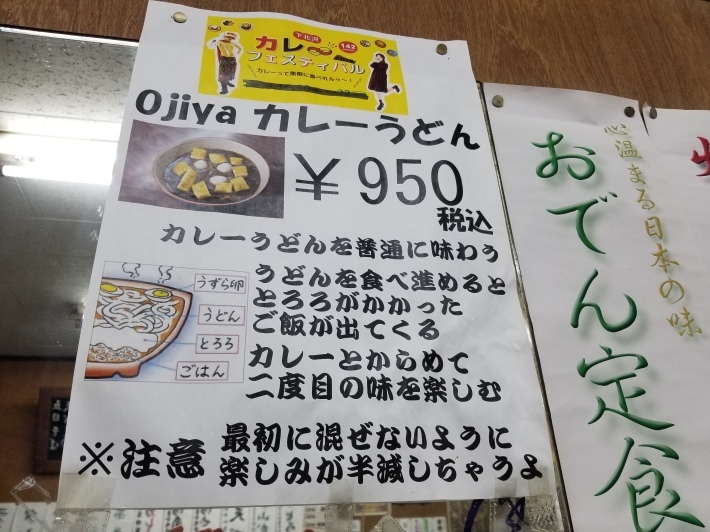 下北沢
カレー
142
フェスティバル
カレーって無限に食べれるゥ〜!
Ojiya カレーうどん
￥950
税込
カレーうどんを普通に味わう
うずら卵
うどん
とろろ
ごはん
うどんを食べ進めると
とろろがかかった
ご飯が出てくる
カレーとからめて
二度目の味を楽しむ
※注意
最初に混ぜないように
楽しみが半減しちゃうよ
心温まる日本の味
おでん定食